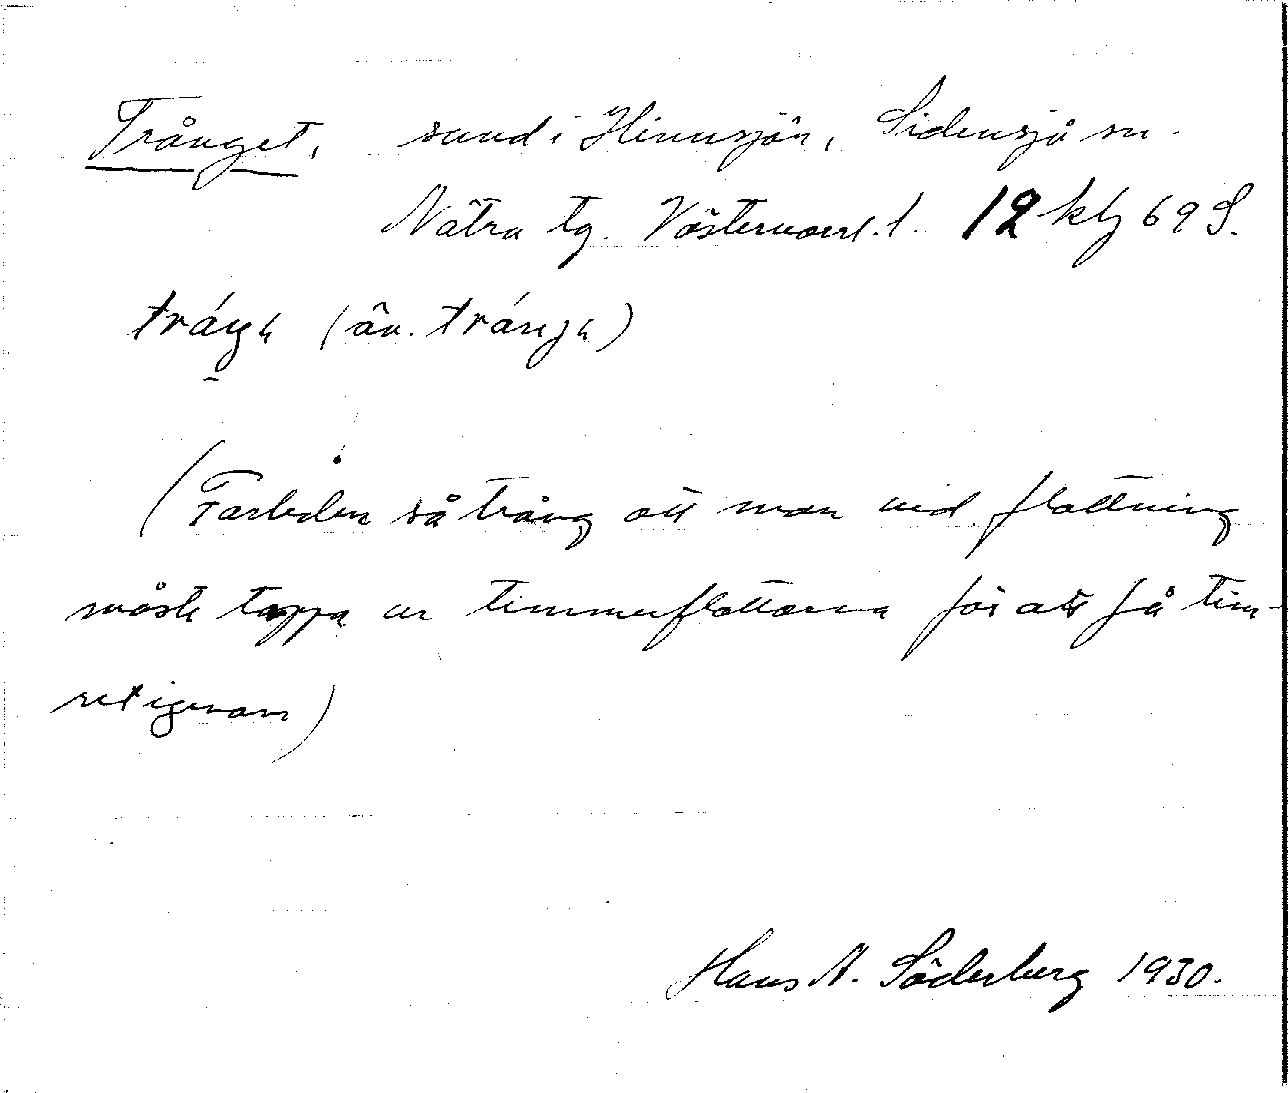 Trånget, sund i Hinnsjön, Sidensjö sn.
Nätra tg. Västernorrl. l. 12 kbl 69 S.
(äv.
(Farleden så trång att man vid flottning
måste tappa ur timmerflottarna för att få tim-
ret igenom)
Hans A. Söderberg 1930.